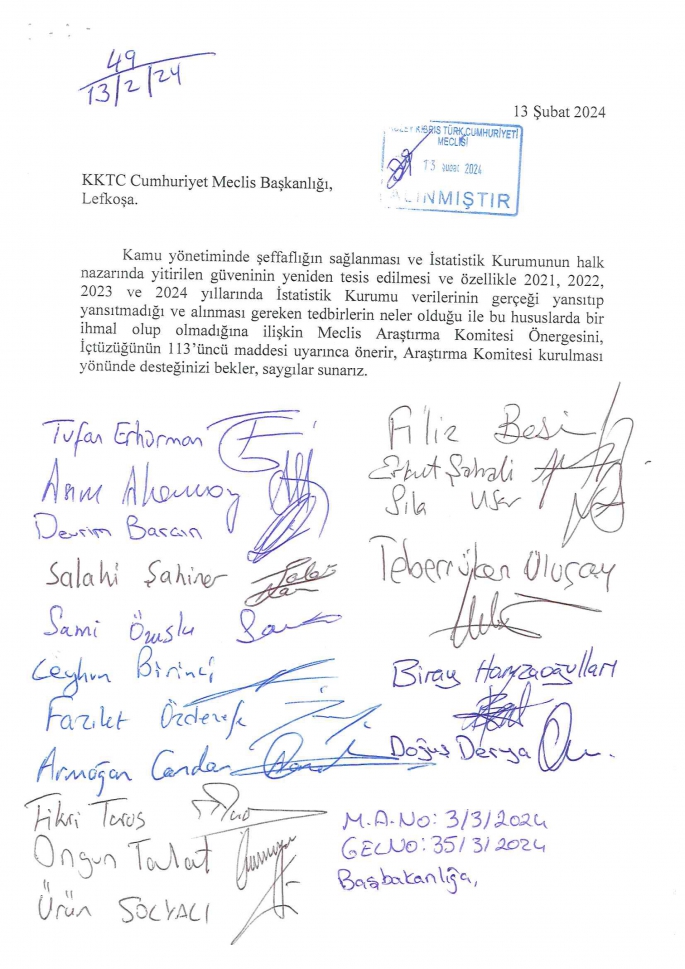 49
13/2/24
13 Şubat 2024
KIBRIS TÜRK CUMHURİYETİ
MECLİSİ
13 Şubat 2024
ALINMIŞTIR
KKTC Cumhuriyet Meclis Başkanlığı,
Lefkoşa.
Kamu yönetiminde şeffaflığın sağlanması ve İstatistik Kurumunun halk
nazarında yitirilen güveninin yeniden tesis edilmesi ve özellikle 2021, 2022,
2023 ve 2024 yıllarında İstatistik Kurumu verilerinin gerçeği yansıtıp
yansıtmadığı ve alınması gereken tedbirlerin neler olduğu ile bu hususlarda bir
ihmal olup olmadığına ilişkin Meclis Araştırma Komitesi Önergesini,
İçtüzüğünün 113’üncü maddesi uyarınca önerir, Araştırma Komitesi kurulması
yönünde desteğinizi bekler, saygılar sunarız.
Tufan Erhürman
Asım Akansoy
Devrim Barçın
Salahi Şahiner
Sami Özuslu
Ceyhun Birinci
Fazilet Özdenefe
Armağan Candan
Fikri Toros
Ongun Talat
Ürün SOLYALI
Filiz Besim
Erkut Şahali
Sıla Usar
Teberrüken Uluçay
Biray Hamzaoğulları
Doğuş Derya
M.A.No: 3/3/2024
GELNO: 35/3/2024
Başbakanlığa,